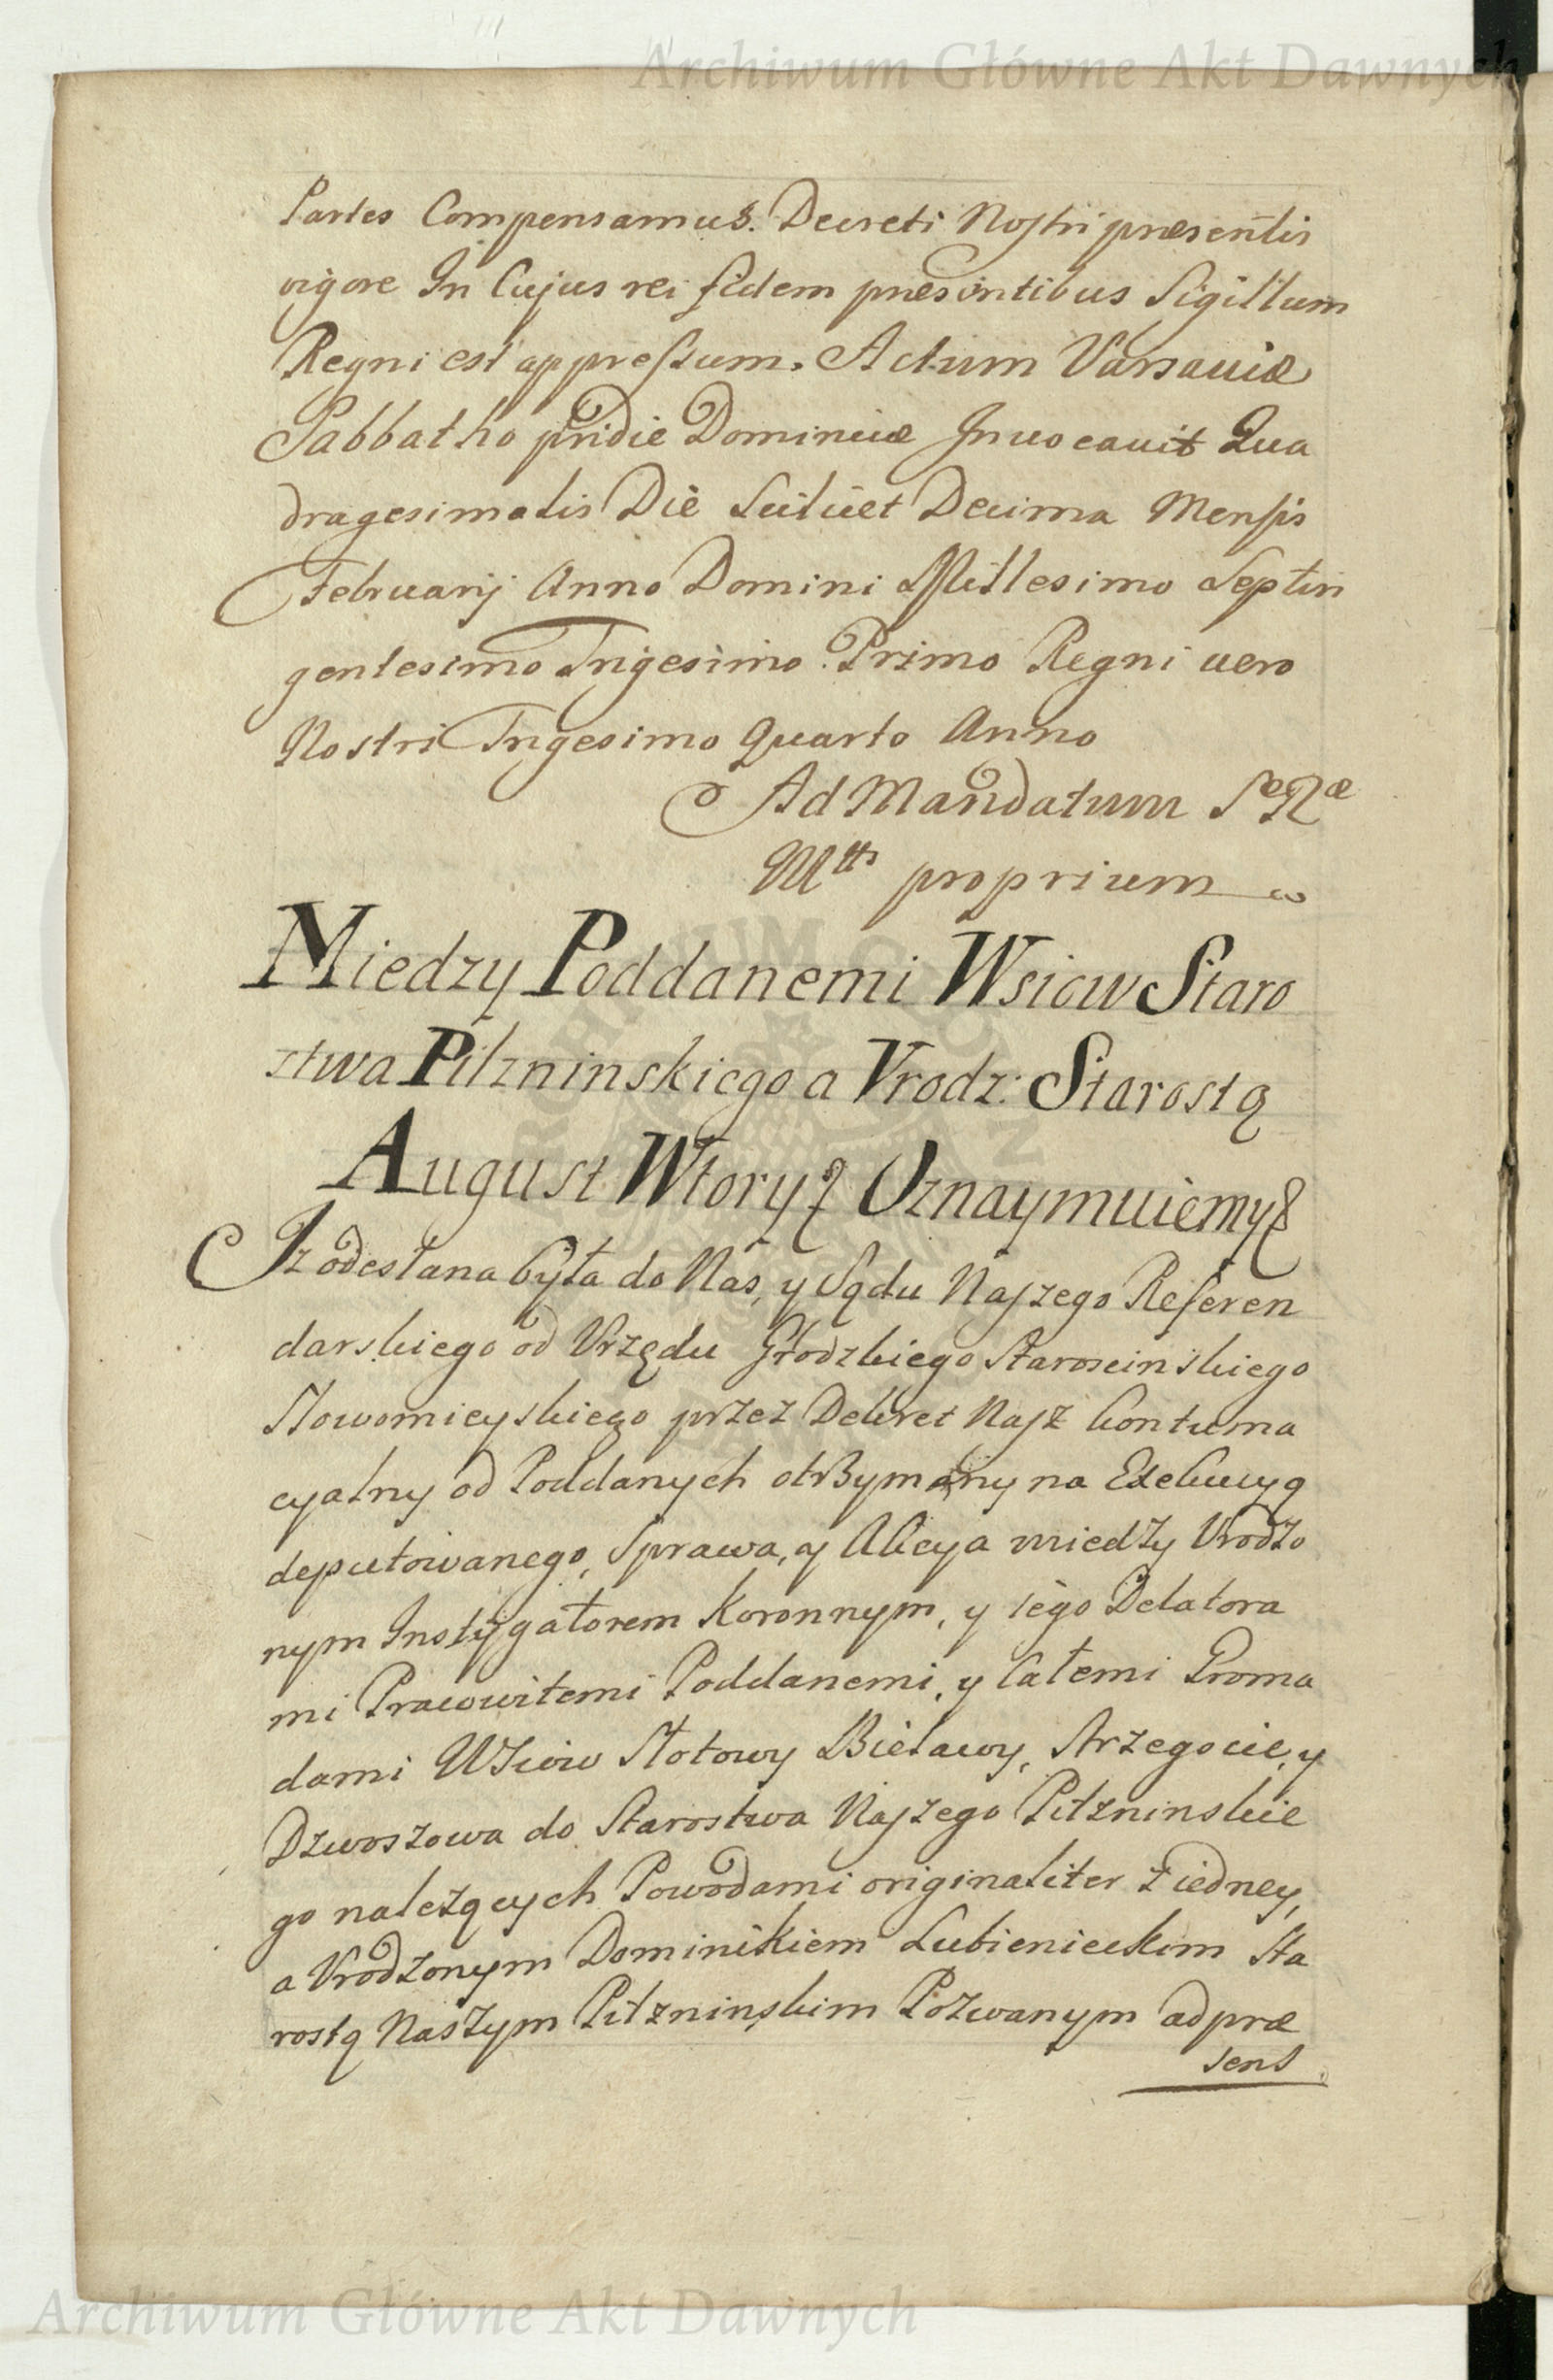 Archiwum Główne Akt Dawnych
Partes Compensamus. Decreti Nostri præsentis
vigore In Cujus rei fidem præsentibus Sigillum
Regni est appressum. Actum Varsaviæ
Sabbatho pridie Dominicæ Invocavit Qua
dragesimalis Die Scilicet Decima Mensis
Februarij Anno Domini Millesimo Septin
gentesimo Trigesimo Primo Regni vero
Nostri Trigesimo Quarto Anno
Ad Mandatum SeRæ
Mttis proprium
Miedzy Poddanemi Wsiow Staro
stwa Pilzninskiego a Vrodz: Starostą
August Wtory & Oznaymuiemy &
Iz odesłana była do Nas, y Sądu Naszego Referen
darskiego od Vrzędu Grodzkiego Staroscinskiego
Nowomieyskiego przez Dekret Nasz Contuma
cyalny od Poddanych otrzymany na Exekucyą
deputowanego, Sprawa, y Akcya miedzy Vrodzo
nym Instygatorem Koronnym, y iego Delatora
mi Pracowitemi Poddanemi, y Całemi Groma
dami Wsiow Słotowy Bielawy, Strzegocic, y
Dzwoszowa do Starostwa Naszego Pilzninskie
go należących Powodami originaliter z iedney,
a Vrodzonym Dominikiem Lubienieckim Sta
rostą Naszym Pilzninskim Pozwanym ad præ
sens
Archiwum Główne Akt Dawnych